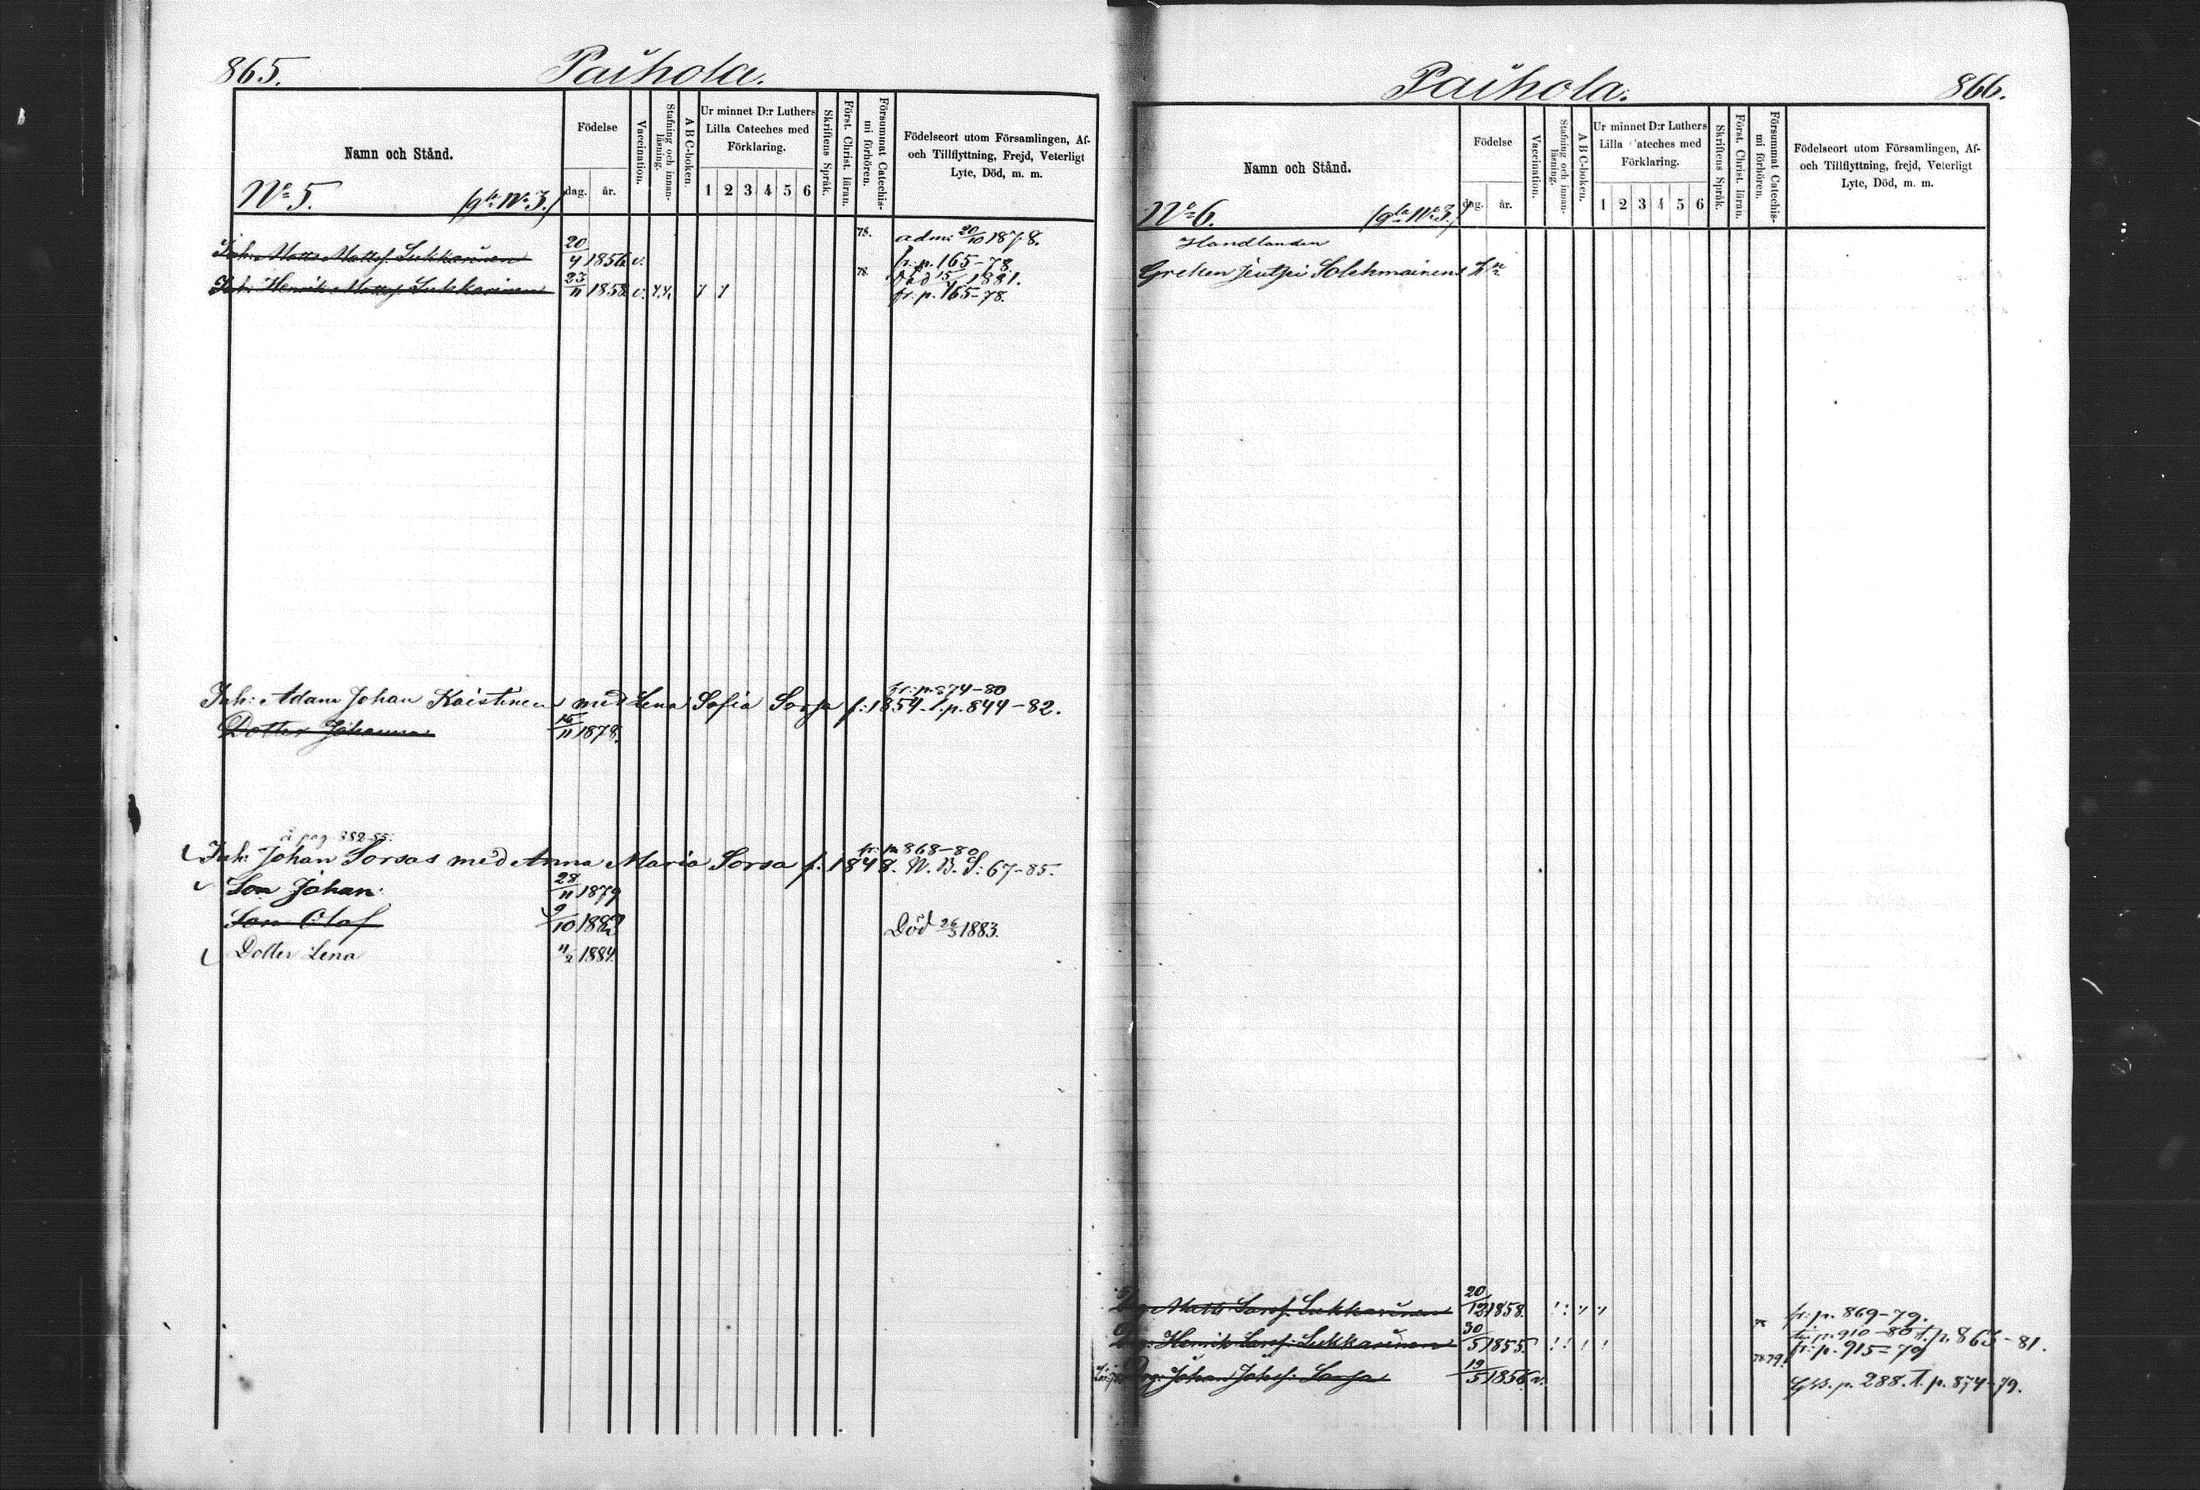 865. Paihola.
Namn och Stånd.
Födelse
dag. år.
Vaccination.
Stafning och innan-läsning.
A B C-boken.
Ur minnet D:r Luthers
Lilla Cateches med
Förklaring.
1 2 3 4 5 6
Skriftens Språk.
Först. Christ. läran.
Försummat Catechis-mi förhören.
Födelseort utom Församlingen, Af-
och Tillflyttning, Frejd, Veterligt
Lyte, Död, m. m.
No 5. No 3.)
78. adm. 20/10 1878.
Matts Mattsf. Sukkarinen 20/4 1856 v. fr. p. 165-78.
78. Död 15/ 1881.
Inh. Henrik Mattsf. Sukkarinen 23/11 1858 v. fr. p. 165-78.
fr. p. 874-80
Inh. Adam Johan Kaistinen med Lena Sofia Sorsa f. 1854. t. p. 844-82.
Dotter Johanna 16/11 1878.
å pag. 382-85.
fr. p. 868-80
Inh. Johan Sorsas med Anna Maria Sorsa f. 1848. N. B. S: 67-85.
Son Johan 28/11 1879
Son Olof 9/10 1882 Död 26/3 1883.
Dotter Lena 4/2 1884.
Paihola. 866.
Namn och Stånd.
Födelse
dag. år.
Vaccination.
Stafning och innan-läsning.
A B C-boken.
Ur minnet D:r Luthers
Lilla Cateches med
Förklaring.
1 2 3 4 5 6
Skriftens Språk.
Först. Christ. läran.
Försummat Catechis-mi förhören.
Födelseort utom Församlingen, Af-
och Tillflyttning, frejd, Veterligt
Lyte, Död, m. m.
No 6. No 3.)
Handlanden
Greken
20/12 1858. fr. p. 869-79.
Matts Sukkarinen
fr. p. 910-80 t. p. 863-81.
Henrik Sukkarinen 30/5 1855. fr. p. 915-79
Johan Johsf. Sorsa 19/5 1856. v. p. 288. t. p. 874-79.